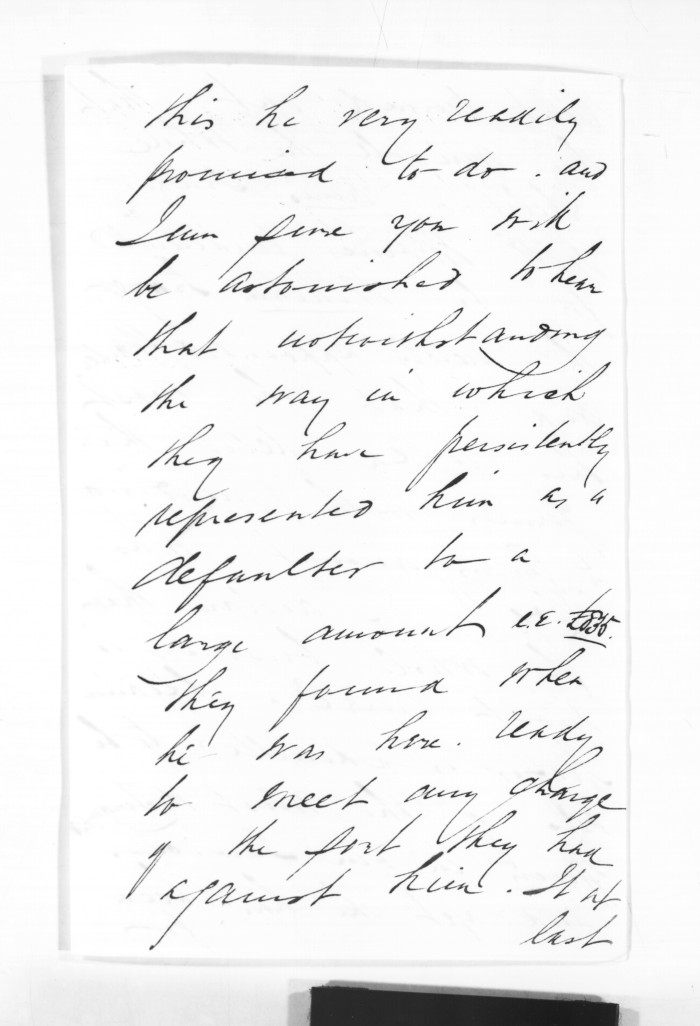 this he very readily
promised to do. and
I am sure you will
be astonished to hear
that notwithstanding
the way in which
they have persistently
represented him as a
defaulter to a
large amount
they found when
he was here. ready
to meet any charge
of the sort they had
against him. It at
last